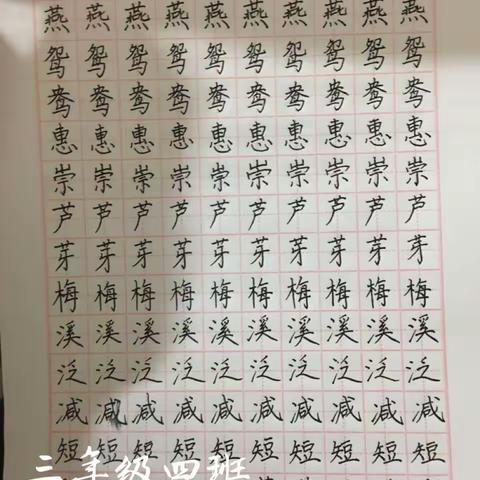 燕燕燕燕燕燕燕燕燕燕
鸳鸳鸳鸳鸳鸳鸳鸳鸳鸳
鸯鸯鸯鸯鸯鸯鸯鸯鸯鸯
惠惠惠惠惠惠惠惠惠惠
崇崇崇崇崇崇崇崇崇崇
芦芦芦芦芦芦芦芦芦芦
芽芽芽芽芽芽芽芽芽芽
梅梅梅梅梅梅梅梅梅梅
溪溪溪溪溪溪溪溪溪溪
泛泛泛泛泛泛泛泛泛泛
减减减减减减减减减减
短短短短短短短短短短
三年级四班